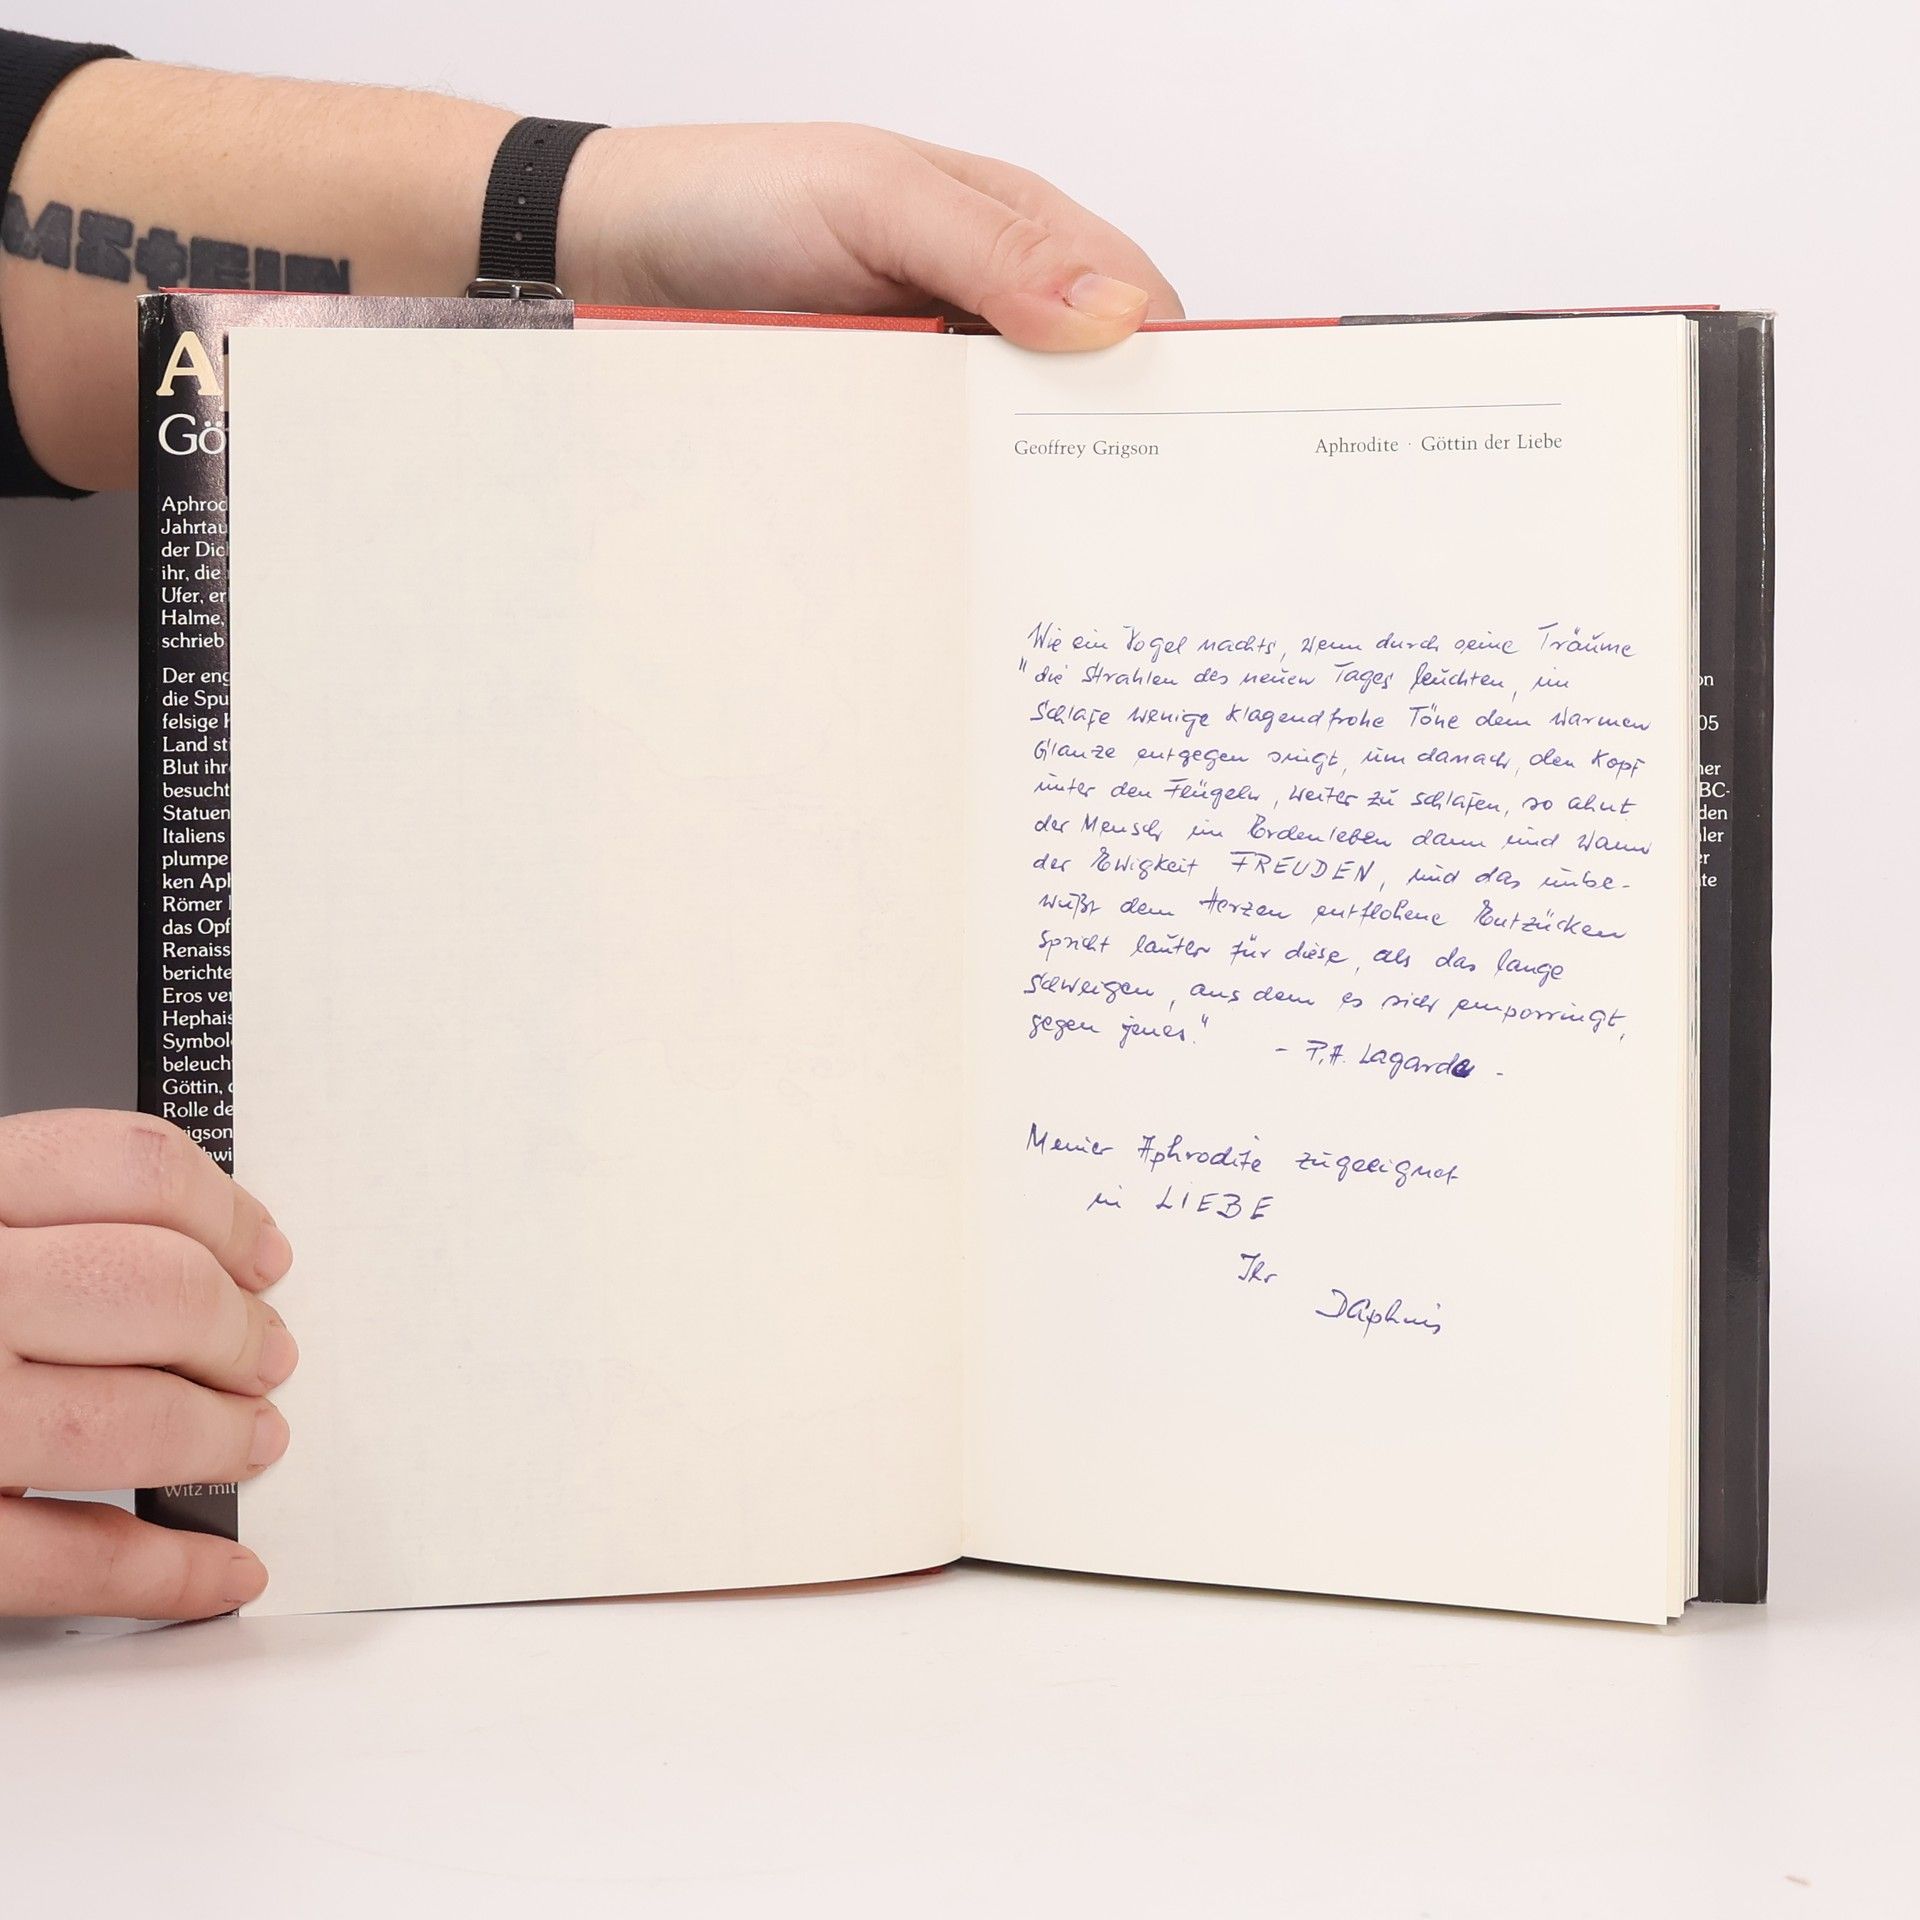 MSTEIN
A
Gö
Aphrod
Jahrtau
der Dic
ihr, die
Ufer, er
Halme,
schrieb
Der eng
die Spu
felsige
Land sti
Blut ihr
besucht
Statuen
Italiens
plumpe
ken Aph
Römer
das Opf
Renaiss
berichte
Eros ver
Hephais
Symbol
beleuch
Göttin,
Rolle de
igson
hwi
Witz mit
Geoffrey Grigson Aphrodite · Göttin der Liebe
Wie ein Vogel nachts, wenn durch seine Träume
"die Strahlen des neuen Tages leuchten, im
Schlafe wenige klagendfrohe Töne dem warmen
Glanze entgegen singt, um danach, den Kopf
unter den Flügeln, weiter zu schlafen, so ahnt
der Mensch im Erdenleben dann und wann
der Ewigkeit FREUDEN, und das unbe-
wußt dem Herzen entflohene Entzücken
spricht lauter für diese, als das lange
Schweigen, aus dem es sich emporringt,
gegen jenes."
- P.A. Lagarde -
Meiner Aphrodite zugeeignet
in LIEBE
Ihr
Daphnis
on
05
her
BC-
den
ler
er
te